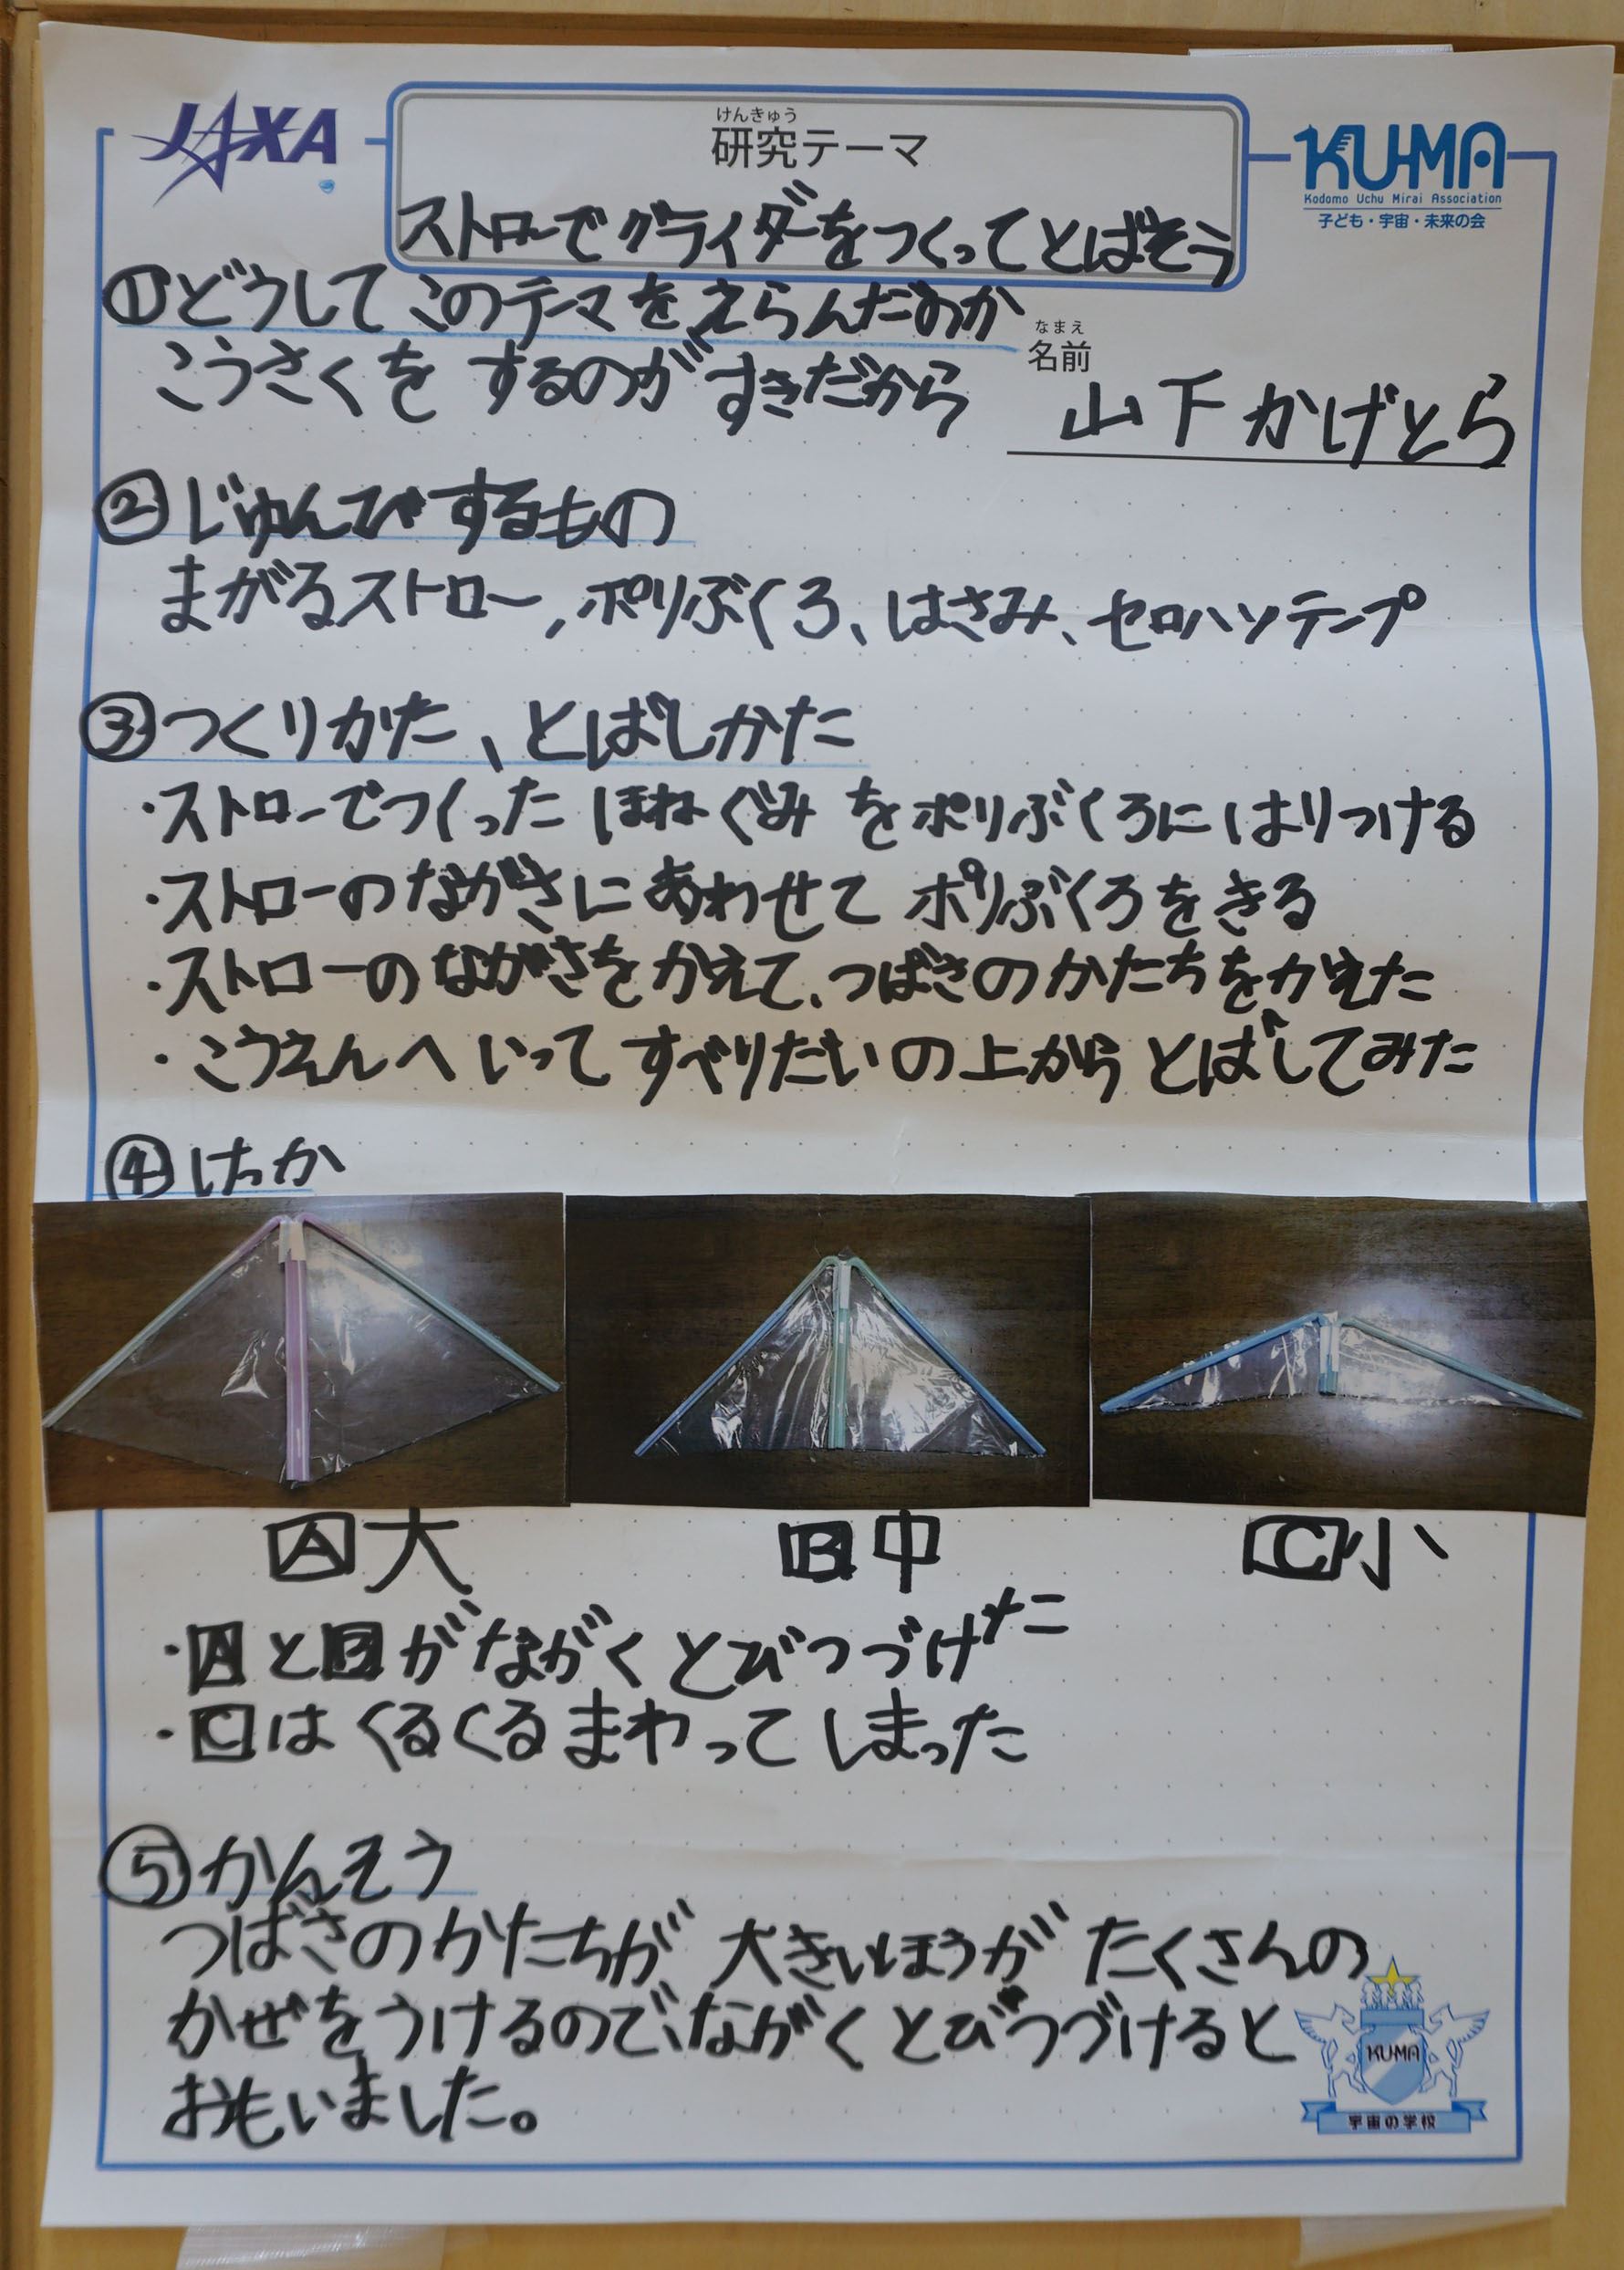 JAXA
けんきゅう
研究テーマ
KU-MA
Kodomo Uchu Mirai Association
子ども・宇宙・未来の会
ストローでグライダーをつくってとばそう
①どうしてこのテーマをえらんだのか
こうさくをするのがすきだから
なまえ
名前
山下かげとら
②じゅんびするもの
まがるストロー、ポリぶくろ、はさみ、セロハンテープ
③つくりかた、とばしかた
・ストローでつくったほねぐみをポリぶくろにはりつける
・ストローのながさにあわせてポリぶくろをきる
・ストローのながさをかえて、つばさのかたちをかえた
・こうえんへいってすべりだいの上からとばしてみた
④けっか
A大
B中
C小
・AとBがながくとびつづけた
・Cはくるくるまわってしまった
⑤かんそう
つばさのかたちが大きいほうがたくさんの
かぜをうけるので、ながくとびつづけると
おもいました。
KU-MA
宇宙の学校